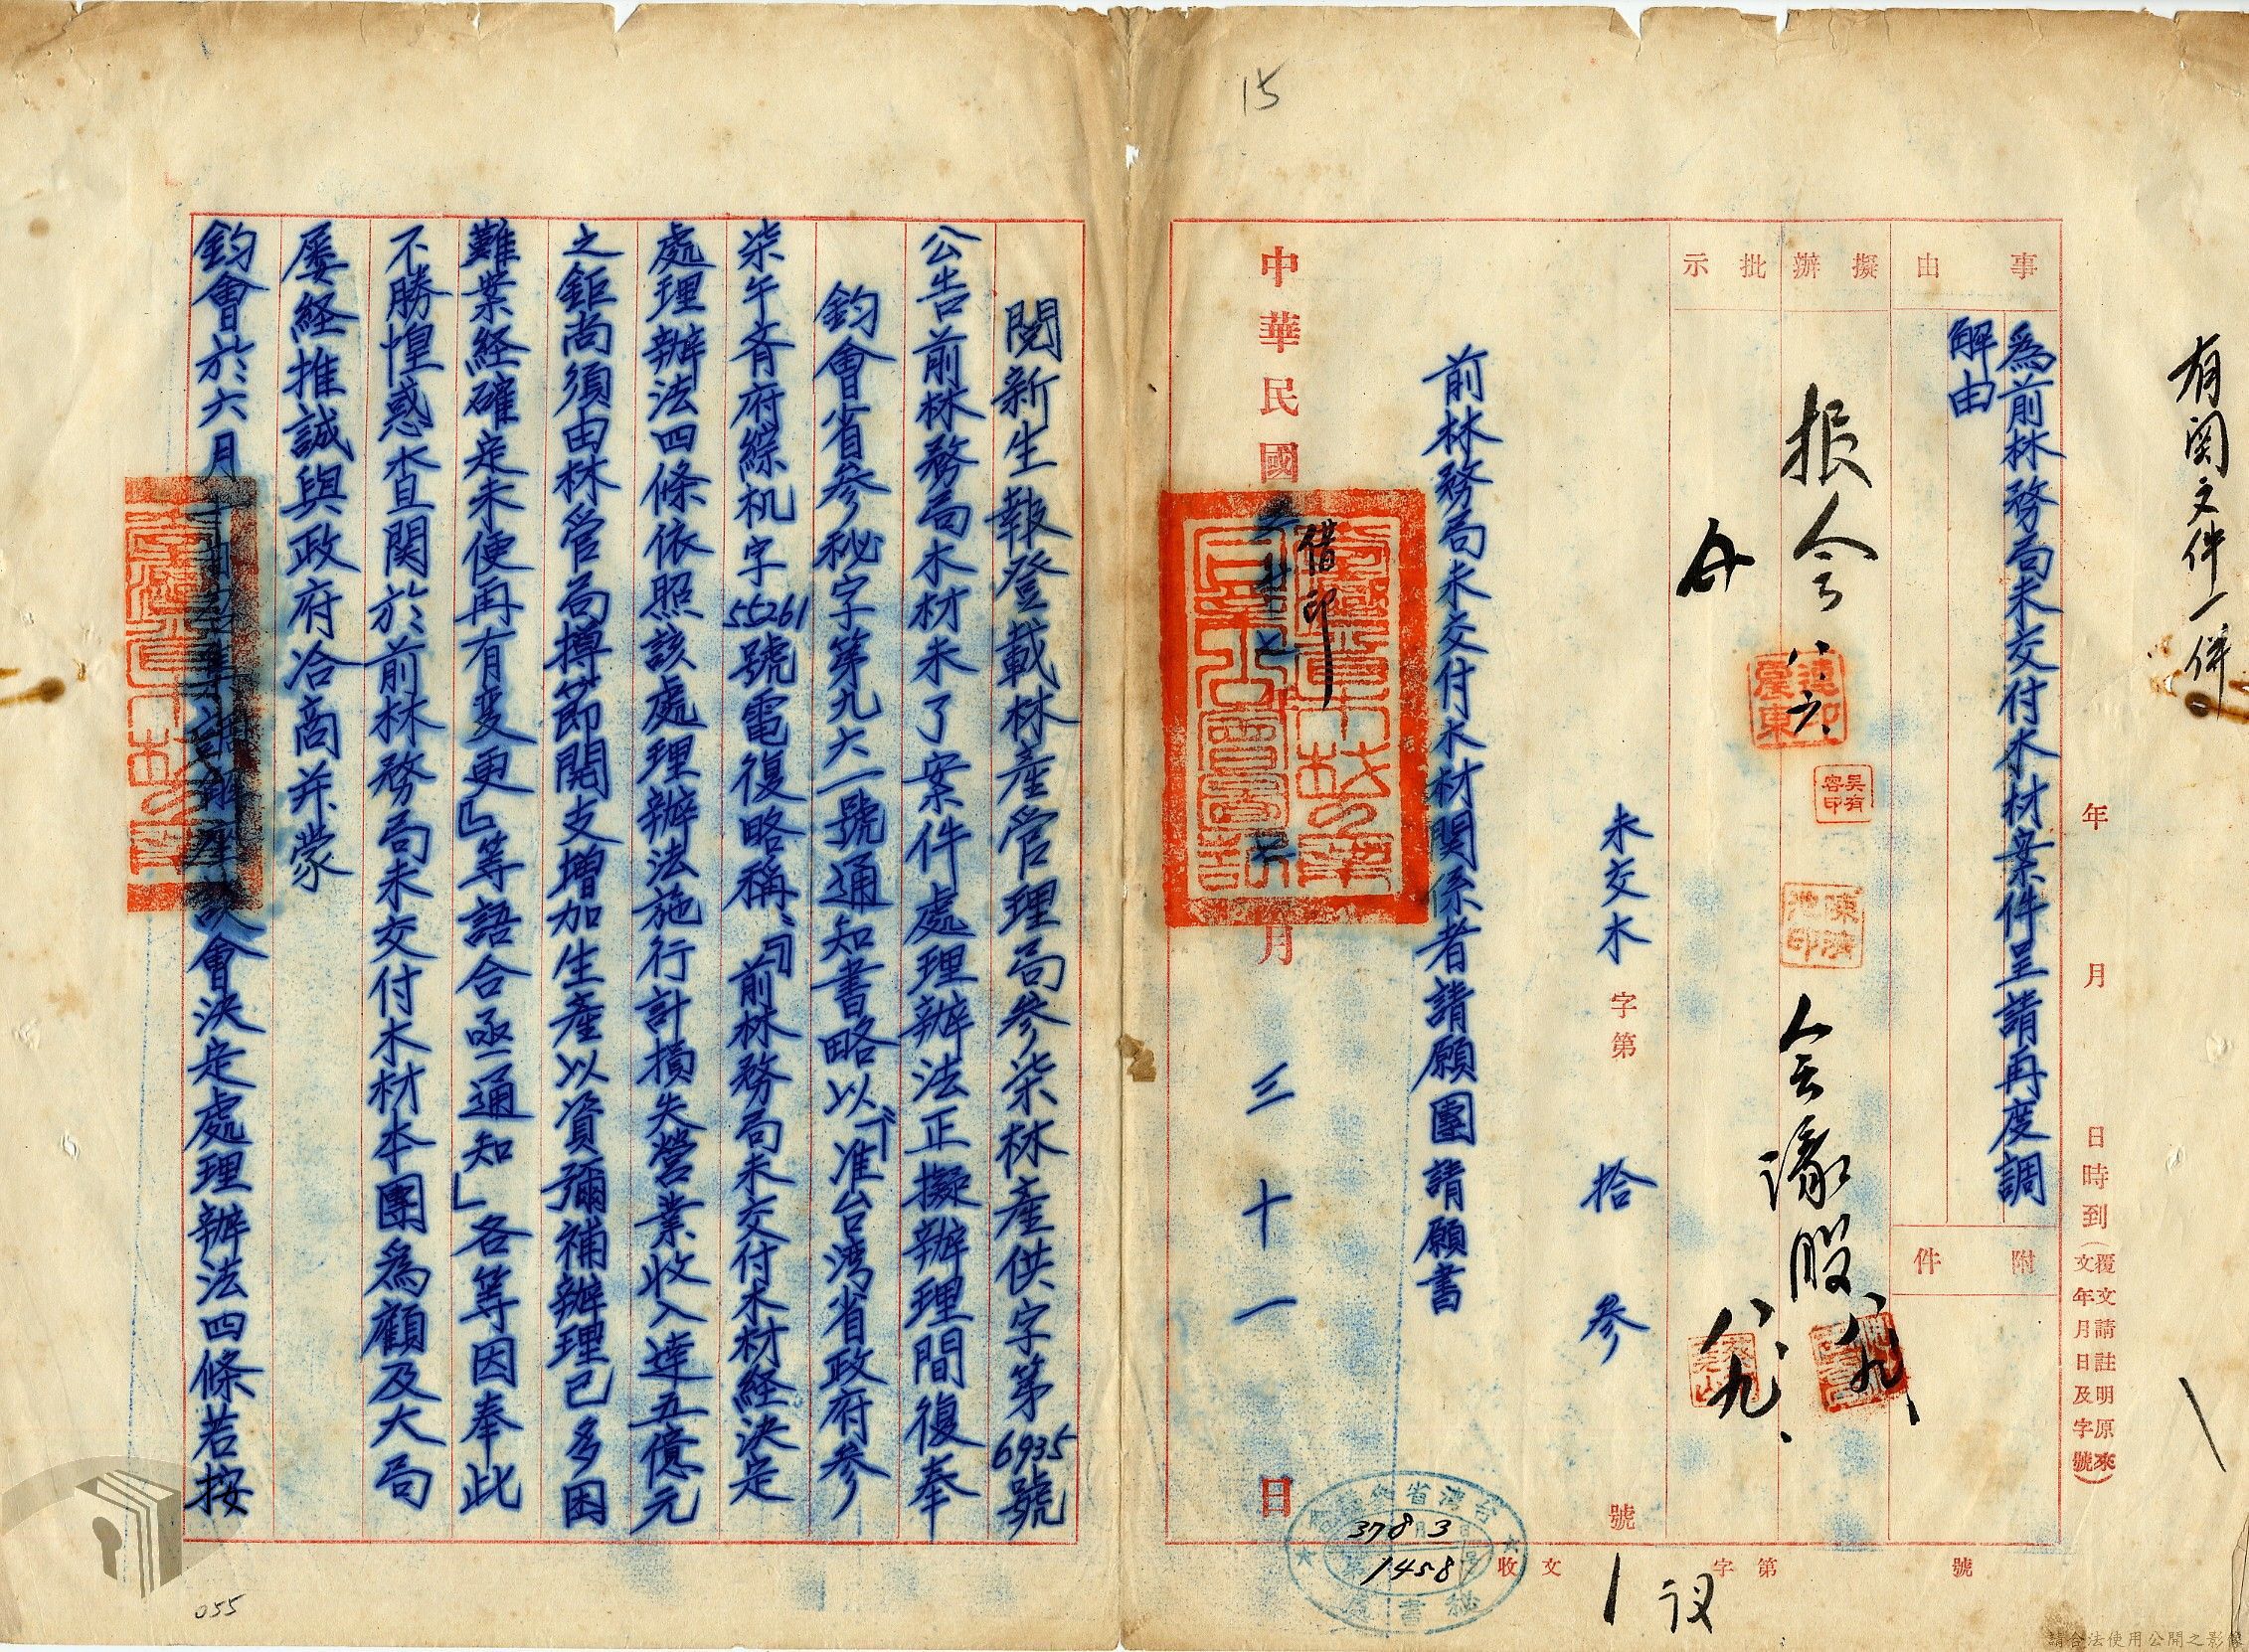 有関文件一併
年 月 日 時到(覆文請註明原來文年月日及字號)
事由
為前林務局未交付木材案件呈請再度調
解由
附件
擬辦
批示
振会
八、六、
吳有容印
会議股
八、九、
八、九、
未交木 字第 拾參 號
前林務局未交付木材関係者請願團 請願書
中華民國
借印
月 三十一 日
台湾省
秘書
37 8 3
1458
收文 字第 號
1
议
15
閱新生報登載林產管理局參柒林產供字第6935號
公告前林務局木材未了案件處理辦法正擬辦理間復奉
鈞會省參秘字第九六一號通知書略以「准台湾省政府參
柒午齊府綜机字55261號電復略稱:『前林務局未交付木材経決定
處理辦法四條依照該處理辦法施行計損失營業收入達五億元
之鉅尚須由林管局撙節開支增加生產以資彌補辦理已多困
難業経確定未便再有变更』等語合亟通知」各等因奉此
不勝惶惑查関於前林務局未交付木材本團為顧及大局
屡経推誠與政府洽商并蒙
鈞會於六月十會決定處理辦法四條若按
055
請合法使用公開之影像